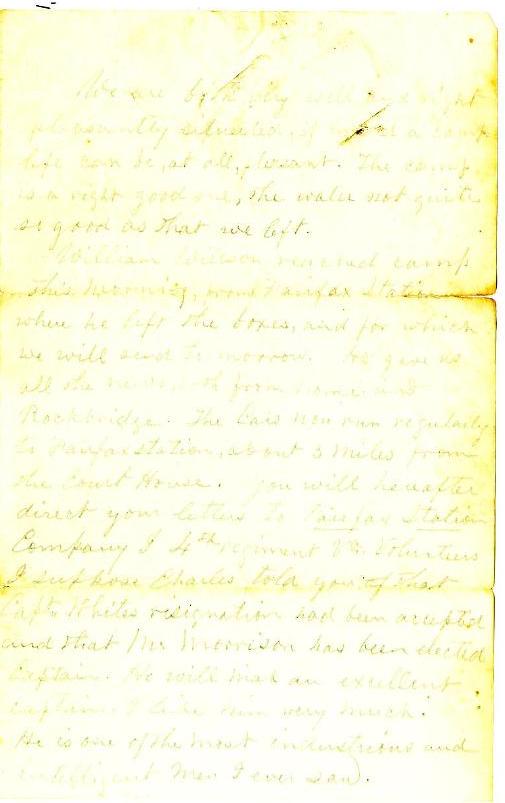 We are both very well and right
pleasantly situated, if a camp
life can be, at all, plesant. The camp
is a right good one, the water not quite
so good as that we left.
William Willson reached camp
this morning, from Fairfax Station
where he left the boxes, and for which
we will send to morrow. He gave us
all the news both from home and
Rockbridge. The Cars now run regularly
to Fairfax station, about 3 miles from
the Court House. You will hereafter
direct your letters to Fairfax Station
Company I 4th regiment Va. Volunteers
I suppose Charles told you of that
Capt. Whites resignation had been accepted
and that Mr Morrison has been elected
Captain. He will mak an excellent
captain. I like him very much.
He is one of the most industrious and
intelligent men I ever saw.